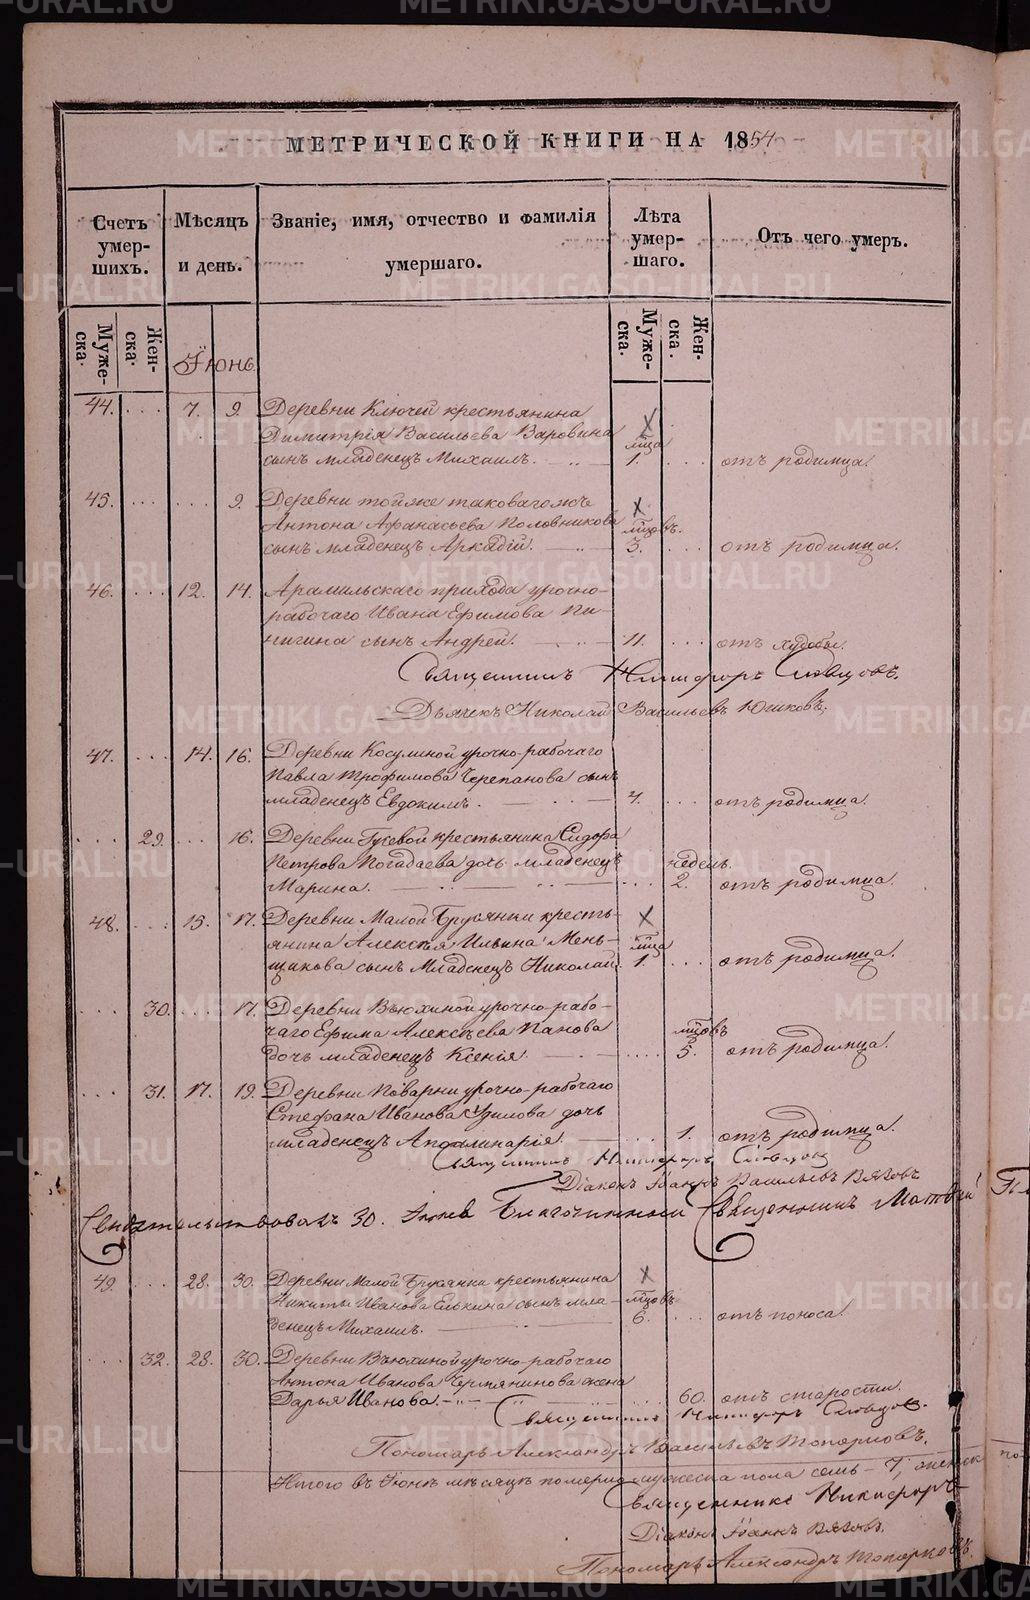 МЕТРИЧЕСКОЙ КНИГИ НА 1854
Счетъ умер- шихъ.
Мѣсяцъ и день.
Званіе, имя, отчество и фамилія умершаго.
Лѣта умер- шаго.
Отъ чего умеръ.
Муже- ска.
Жен- ска.
Муже- ска.
Жен- ска.
Іюнь
44. 7. 9. Деревни Ключей крестьянина
Димитрія Васильева Варовина мца
сынъ младенецъ Михаилъ. 1. отъ родимца.
45. 9. Деревни тойже таковагожъ
Антона Афанасьева Половникова мцовъ.
сынъ младенецъ Аркадій. 3. отъ родимца.
46. 12. 14. Арамильскаго прихода урочно-
рабочаго Ивана Ефимова Пи-
нигина сынъ Андрей. 11. отъ худобы.
Священникъ Никифоръ Словцовъ.
Дьячекъ Николай Васильевъ Югиковъ;
47. 14. 16. Деревни Косулиной урочно-рабочаго
Павла Трофимова Черепанова сынъ
младенецъ Евдокимъ. 4. отъ родимца.
29. 16. Деревни Гусевой крестьянина Сидора
Петрова Погадаева дочь младенецъ недель.
Марина. 2. отъ родимца.
48. 15. 17. Деревни Малой Брусянки кресть-
янина Алексѣя Ильина Мень- мца
щикова сынъ Младенецъ Николай. 1. отъ родимца.
30. 17. Деревни Вьюхиной урочно-рабо-
чаго Ефима Алексѣева Панова мцовъ
дочь младенецъ Ксенія. 5. отъ родимца.
31. 17. 19. Деревни Поварни урочно-рабочаго
Стефана Иванова дочь
младенецъ Аполлинарія. 1. отъ родимца.
Священникъ Никифоръ Словцовъ
Діаконъ Іоаннъ Васильевъ Вяховъ
Свидѣтельствовалъ 30. Іюня Благочинный Священникъ Матвѣй
49. 28. 30. Деревни Малой Брусянки крестьянина
Никиты Иванова Елькина сынъ мла- мцовъ
денецъ Михаилъ. 6. отъ поноса.
32. 28. 30. Деревни Вьюхиной урочно-рабочаго
Антона Иванова Чермянинова жена
Дарья Иванова. 60. отъ старости.
Священникъ Никифоръ Словцовъ.
Пономарь Александръ Васильевъ Топорковъ.
Итого въ Іюнѣ мѣсяцѣ померло мужеска пола семь - 7, женск
Священникъ Никифоръ
Діаконъ Іоаннъ Вяховъ.
Пономарь Александръ Топорковъ.
METRIKI.GASO-URAL.RU